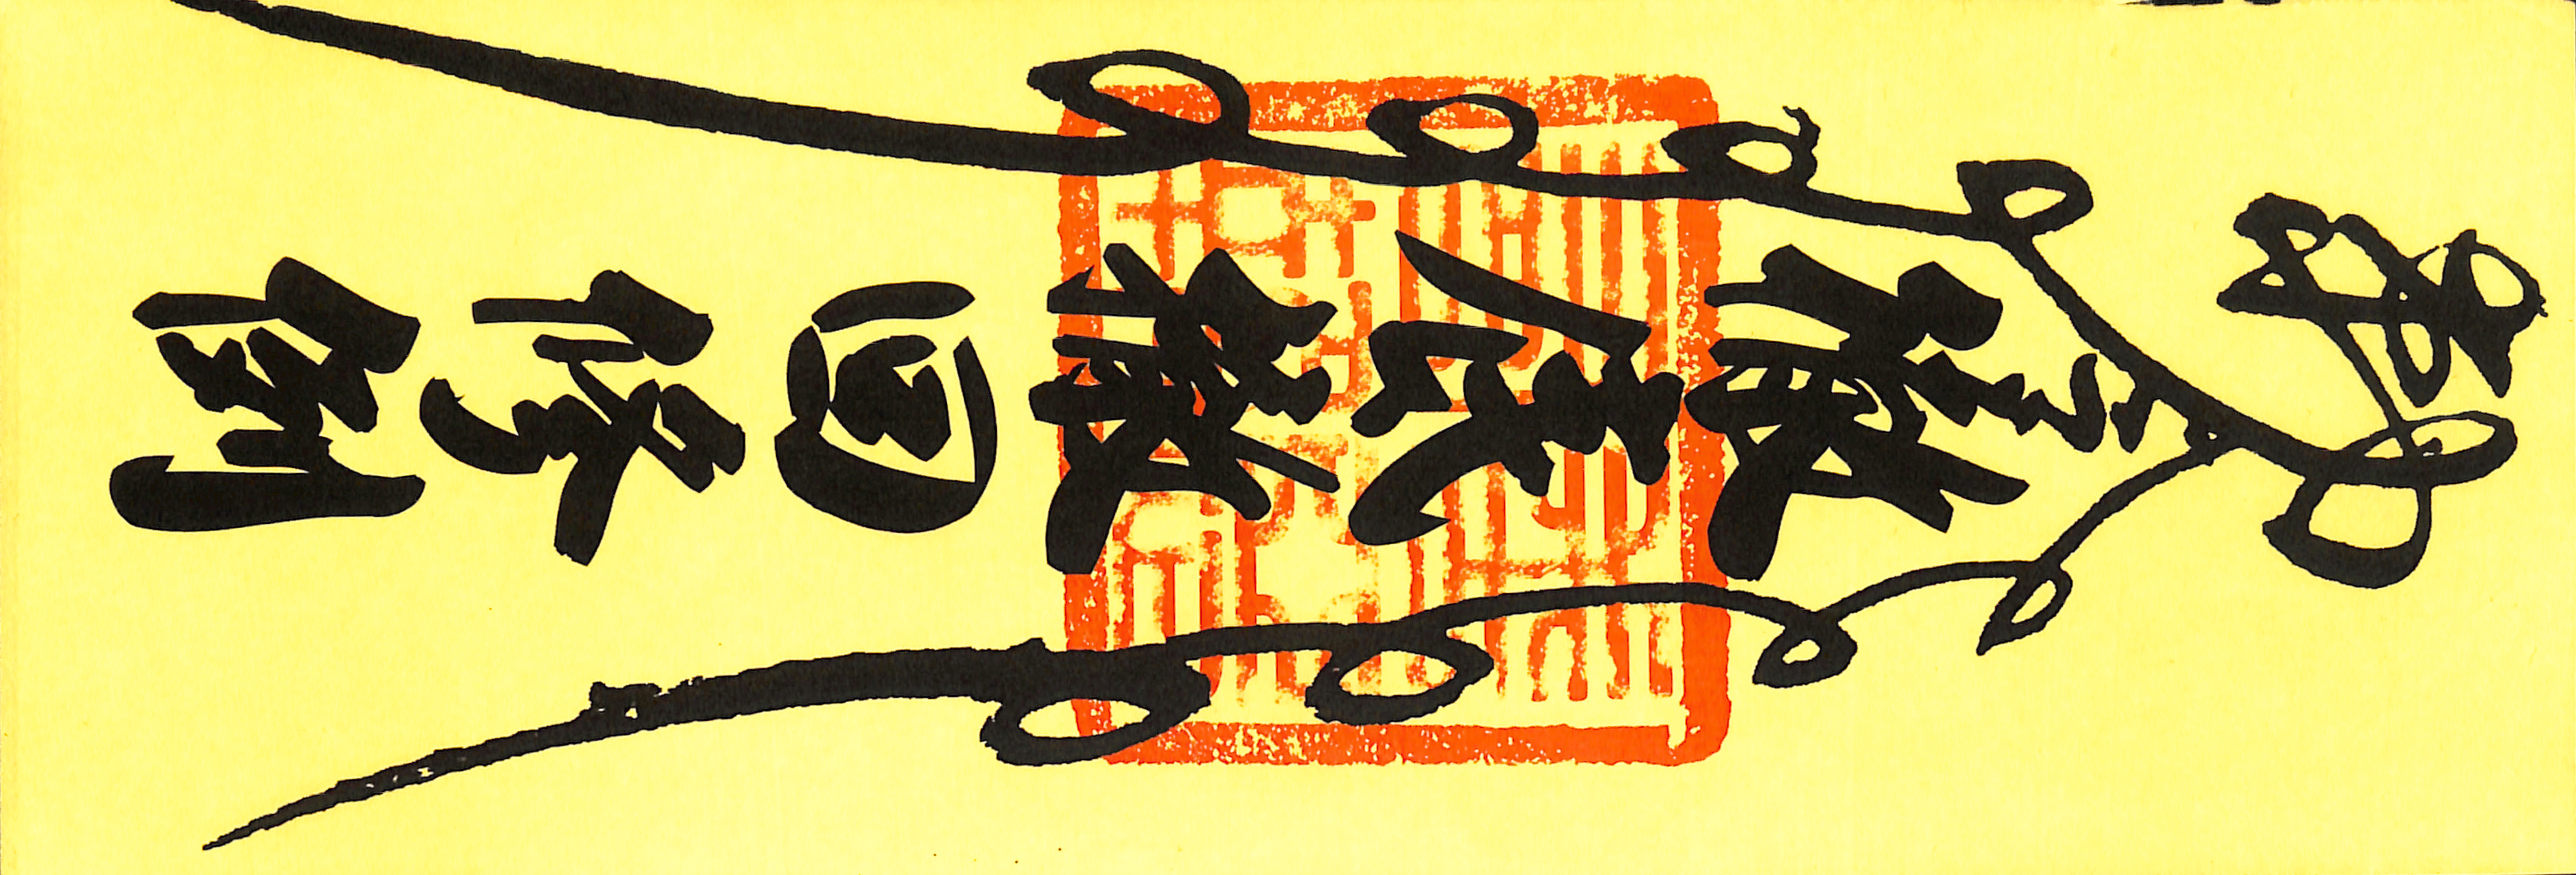 勅令徹底撤回修例